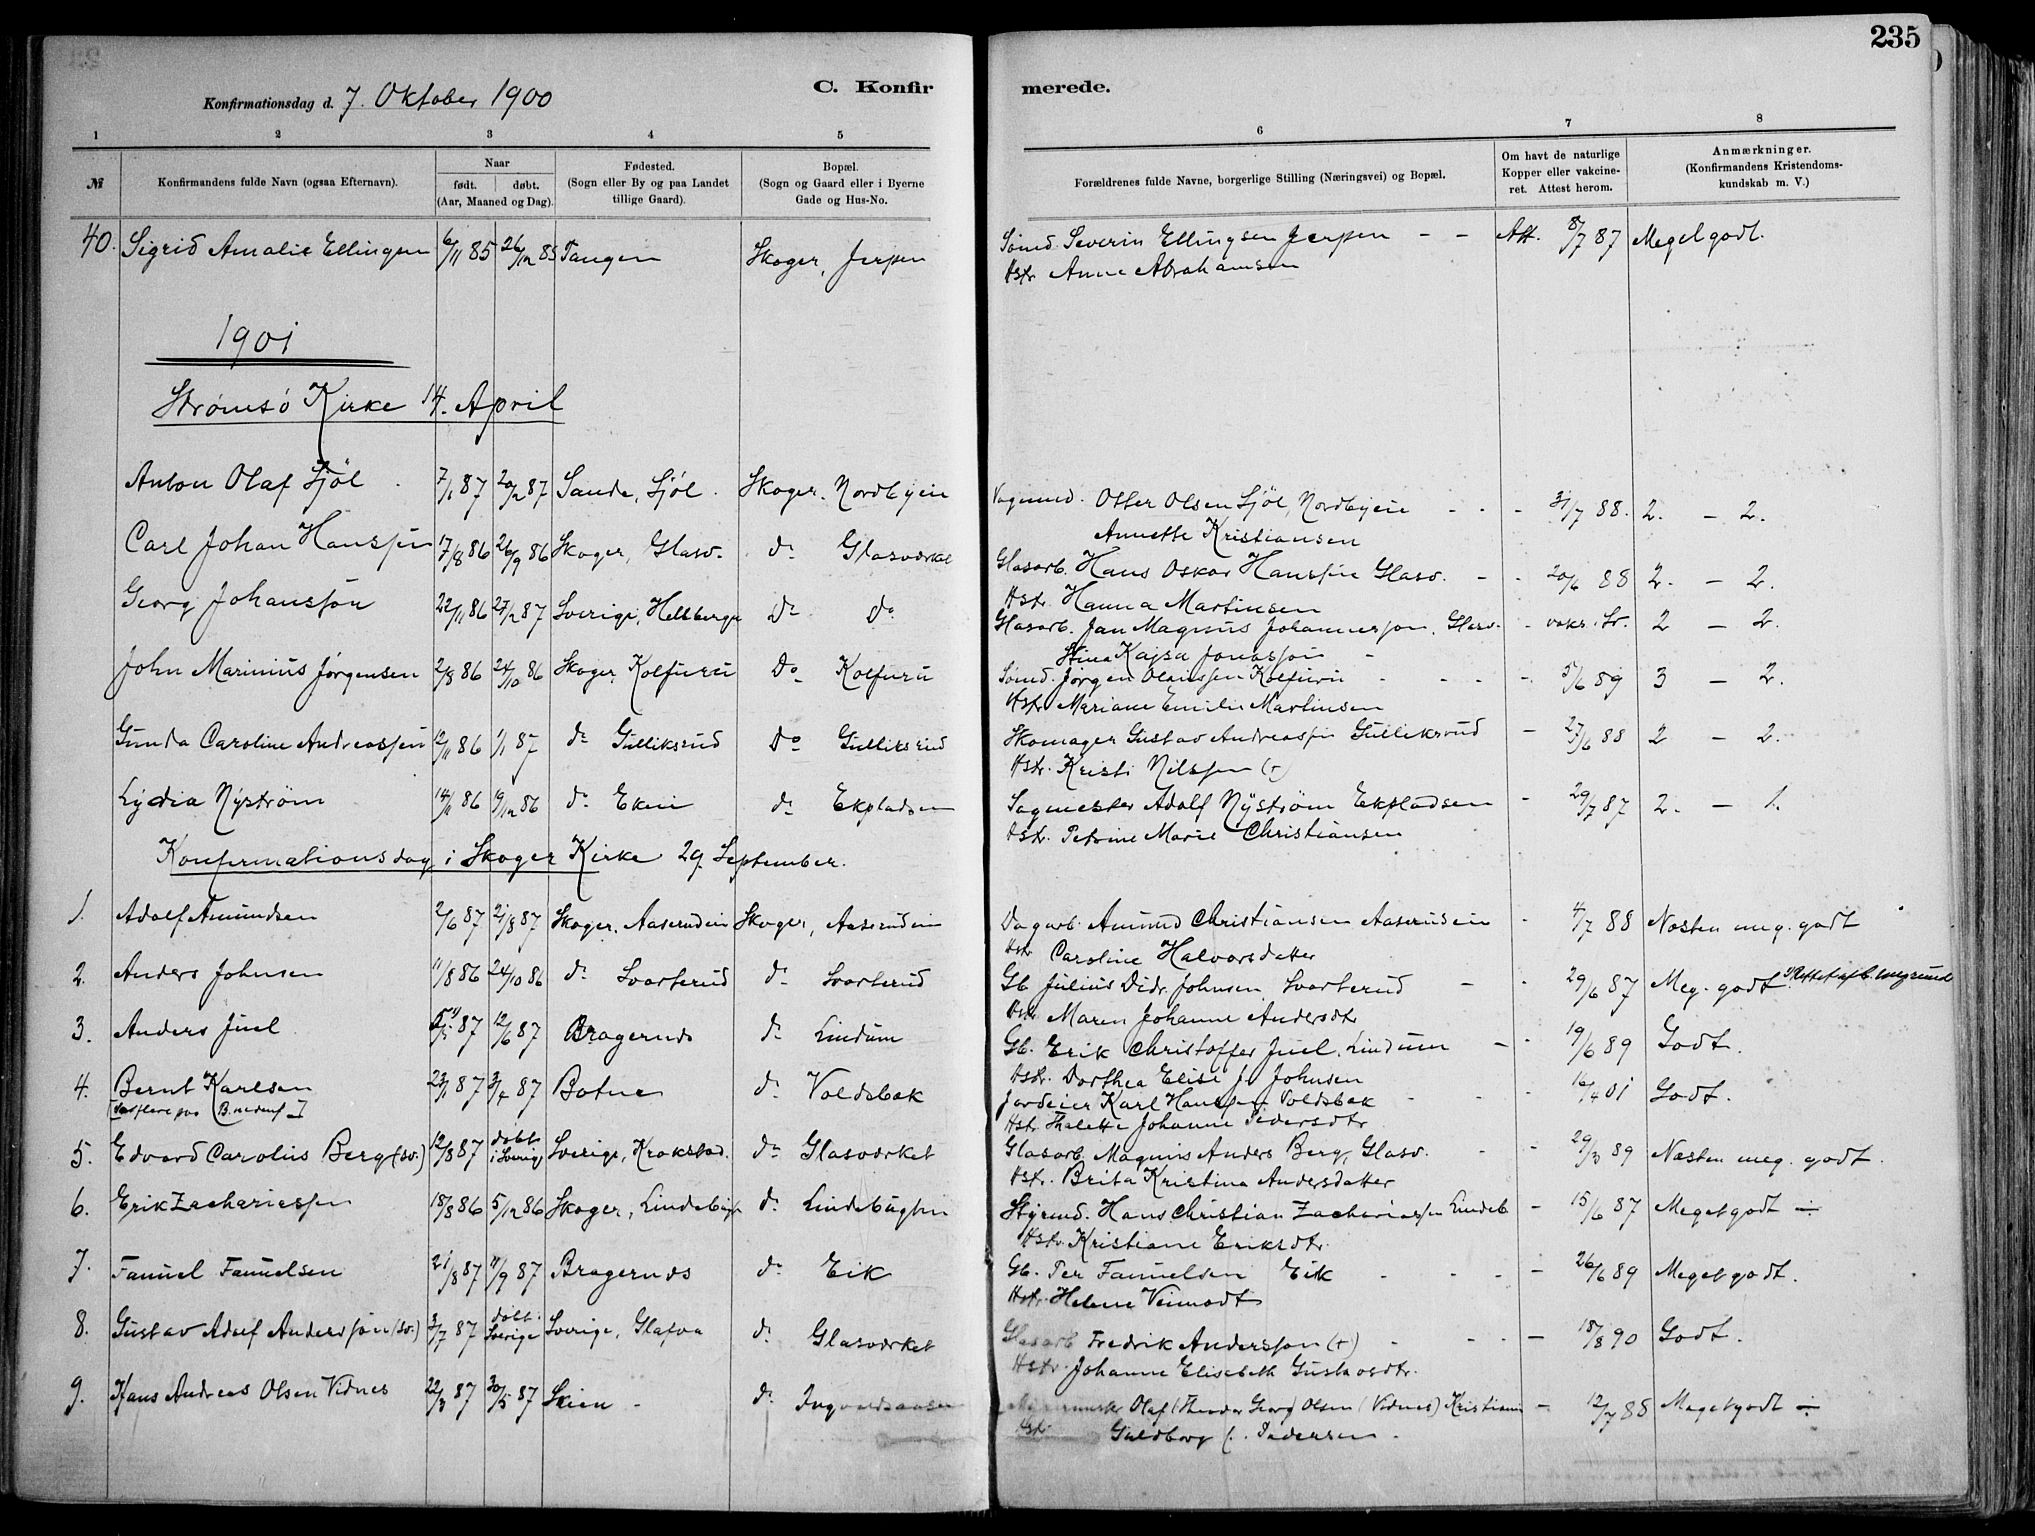 235
Konfirmationsdag d. 7. Oktober 1900 C. Konfir merede.
1 2 3 4 5 6 7 8
№ Konfirmandens fulde Navn (ogsaa Efternavn). Naar født. døbt. (Aar, Maaned og Dag). Fødested. (Sogn eller By og paa Landet tillige Gaard). Bopæl. (Sogn og Gaard eller i Byerne Gade og Hus-No. Forældrenes fulde Navne, borgerlige Stilling (Næringsvei) og Bopæl. Om havt de naturlige Kopper eller vakcineret. Attest herom. Anmærkninger. (Konfirmandens Kristendomskundskab m. V.)
40. Sigrid Amalie Ellingsen 6/11 85 26/12 85 Tangen Skoger, Jerpen Sømd. Severin Ellingsen Jerpen - - Att. 8/7 87 Meget godt.
Hstr. Anne Abrahamsen
1901
Strømsö Kirke 14. April
Anton Olaf Sjöl 7/1 87 20/2 87 Sande, Sjöl. Skoger. Nordbyeie Vognmd. Otter Olsen Sjöl, Nordbyeie - - - 31/7 88. 2. - 2.
Annette Kristiansen
Carl Johan Hanssen 17/8 86 26/9 86 Skoger, Glasv. do Glasværket Glasarb. Hans Oskar Hanssen Glasv. - - 20/6 88 2. - 2.
Hstr. Hanna Martinsen
Georg Johansson 22/11 86 27/2 87 Sverige, Hellberga Do do Glasarb. Jan Magnus Johannesson, Glasv. - vaks. Sv. 2 - 2.
Stina Kajsa Jonasson -
John Marinius Jörgensen 2/8 86 24/10 86 Skoger, Kolfuru Do Kolfuru Sömd. Jörgen Olaissen Kolfuru - - - - 5/6 89 3 - 2.
Hstr. Mariane Emilie Martinsen
Gunda Caroline Andreassen 12/11 86 1/1 87 do Gulliksrud Do Gulliksrud Skomager Gustav Andreassen Gulliksrud - 27/6 88 2 - 2.
Hstr. Kristi Nilssen (+)
Lydia Nyström 14/11 86 19/12 86 do Eken do Ekpladsen Sagmester Adolf Nyström Ekpladsen - 29/7 87 2. - 1.
Hstr. Petrine Marie Christiansen
Konfirmationsdag i Skoger Kirke 29. September.
1. Adolf Amundsen 2/6 87 21/8 87 Skoger, Aaserudeie Skoger, Aaserudeie Dagarb. Amund Christiansen Aaserudeie - 4/7 88 Næsten meg. godt
Hstr. Caroline Halvorsdatter
2. Anders Johnsen 11/8 86 24/10 86 do Svarterud do Svarterud Gb. Julius Didr. Johnsen Svarterud - - 29/6 87 Meg. godt
Hstr. Maren Johanne Andersdtr
3. Anders Juel 87 12/6 87 Bragernes do Lindum Gb. Erik Christoffer Juel, Lindum - - 19/6 89 Godt.
Hstr. Dorthea Elise J. Johnsen
4. Bernt Karlsen 23/1 87 3/4 87 Botne do Voldsbæk Jordeier Karl Hansen Voldsbæk - - - 16/4 01 Godt.
Hstr. Thalette Johanne Pedersdtr
5. Edvard Carolius Berg (sv.) 12/8 87 döbt i Sverige Sverige, Krokstad. do Glasværket Glasarb. Magnus Anders Berg, Glasv. - - 29/3 89 Næsten meg. godt.
Hstr. Brita Kristina Andersdatter
6. Erik Zachariassen 18/8 86 5/12 86 Skoger, Lindebugt do Lindebugten Styrmd. Hans Christian Zachariassen Lindeb - 15/6 87 Meget godt ÷
Hstr. Kristiane Eriksdtr.
7. Fanuel Fanuelsen 21/8 87 11/9 87 Bragernes do Eik Gb. Per Fanuelsen Eik - - - - 26/6 89 Meget godt.
Hstr. Helene Veimodt
8. Gustav Adolf Andersson (sv.) 3/7 87 döbt. Sverige Sverige, Glafva do Glasværket Glasarb Fredrik Andersson (+) - - - - 18/8 90 Godt.
Hstr. Johanne Elisabeth Gustavsdtr.
9. Hans Andreas Olsen Vidnes 22/3 87 30/5 87 Skien - do Olaf (Theodor Georg) Olsen (Vidnes) Kristiania - 12/7 88 Meget godt ÷
Hstr Guldborg f. Pedersen.